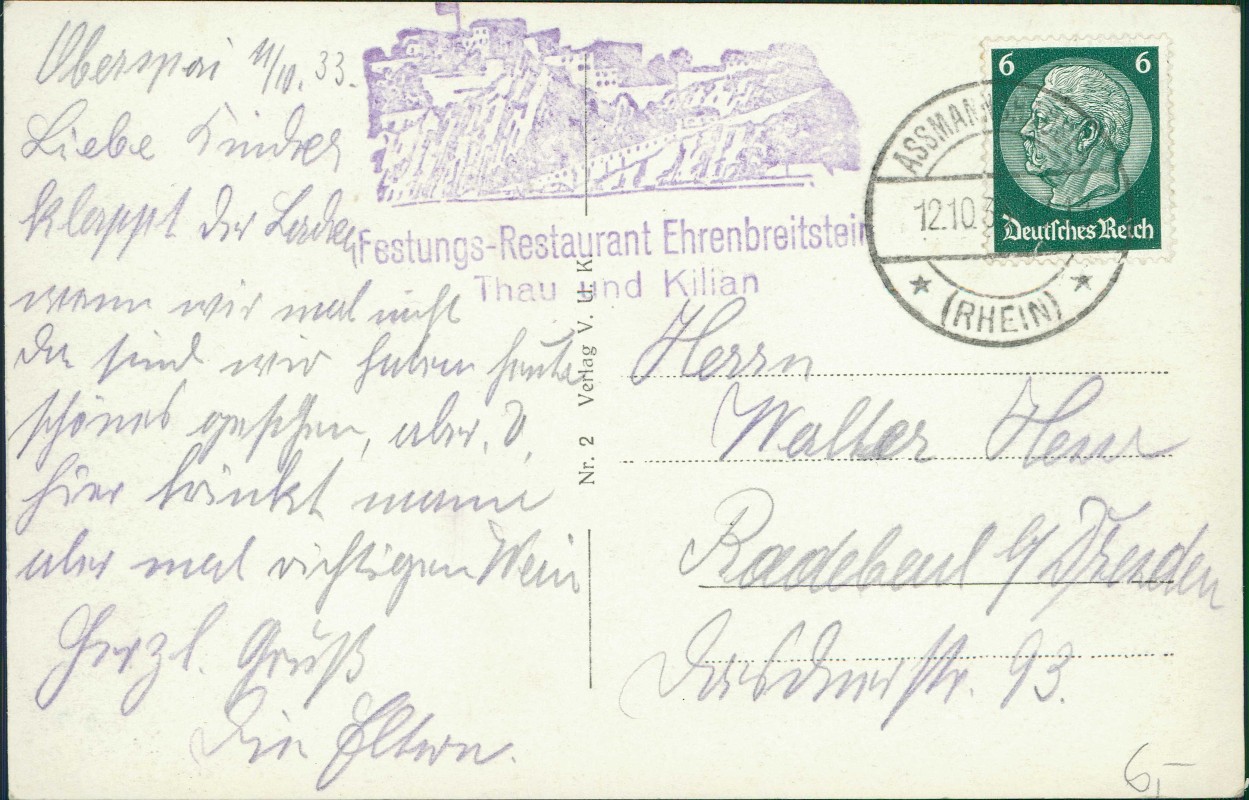 Oberspai 11/10. 33.
Liebe Kinder
klappt der Laden
wenn wir mal nicht
da sind wir haben heute
schönes gesehen, aber,
hier trinkt mann
aber mal richtigen Wein
Herzl. Gruß
Die Eltern.
Festungs-Restaurant Ehrenbreitstein
Thau und Kilian
Nr. 2 Verlag V. U. K.
6 6
Deutsches Reich
12.10.3
★ (RHEIN) ★
Herrn
Walter
Radebeul b/ Dresden
Dresdnerstr. 93.
6,-